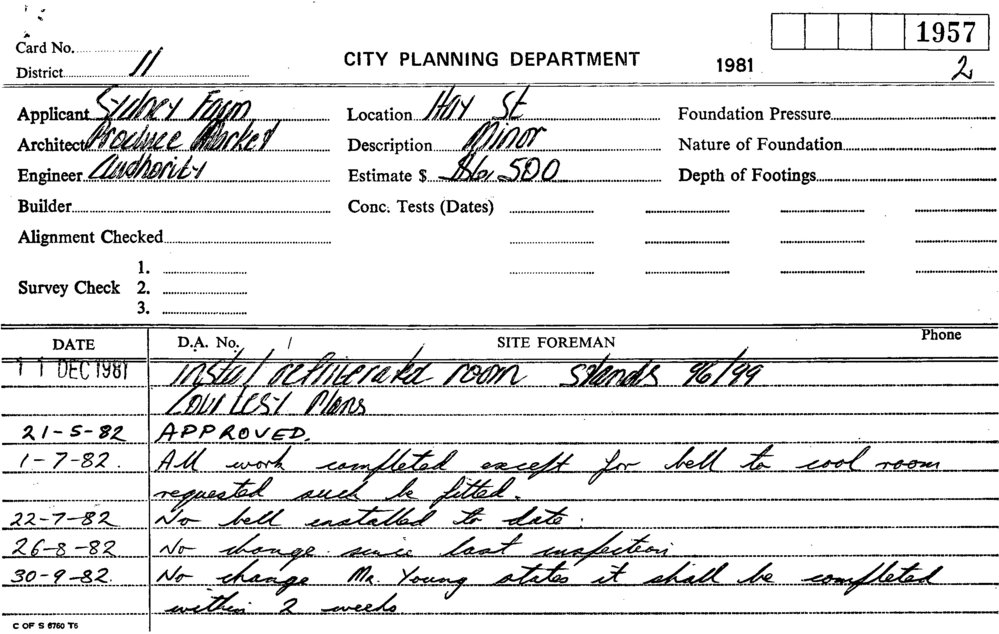 Card No.
1957
District 11
CITY PLANNING DEPARTMENT
1981
2
Applicant Sydney Farm
Location Hay St
Foundation Pressure
Architect Produce Market
Description Minor
Nature of Foundation
Engineer Authority
Estimate $ $6,500
Depth of Footings
Builder
Conc. Tests (Dates)
Alignment Checked
Survey Check 1.
2.
3.
DATE D.A. No. / SITE FOREMAN Phone
11 DEC 1981 Instal refrigerated room stands 96/99
Courtesy Plans
21-5-82 APPROVED.
1-7-82. All work completed except for bell to cool room
requested such be fitted.
22-7-82 No bell installed to date.
26-8-82 No change since last inspection
30-9-82. No change Mr. Young states it shall be completed
within 2 weeks
C OF S 6760 T6